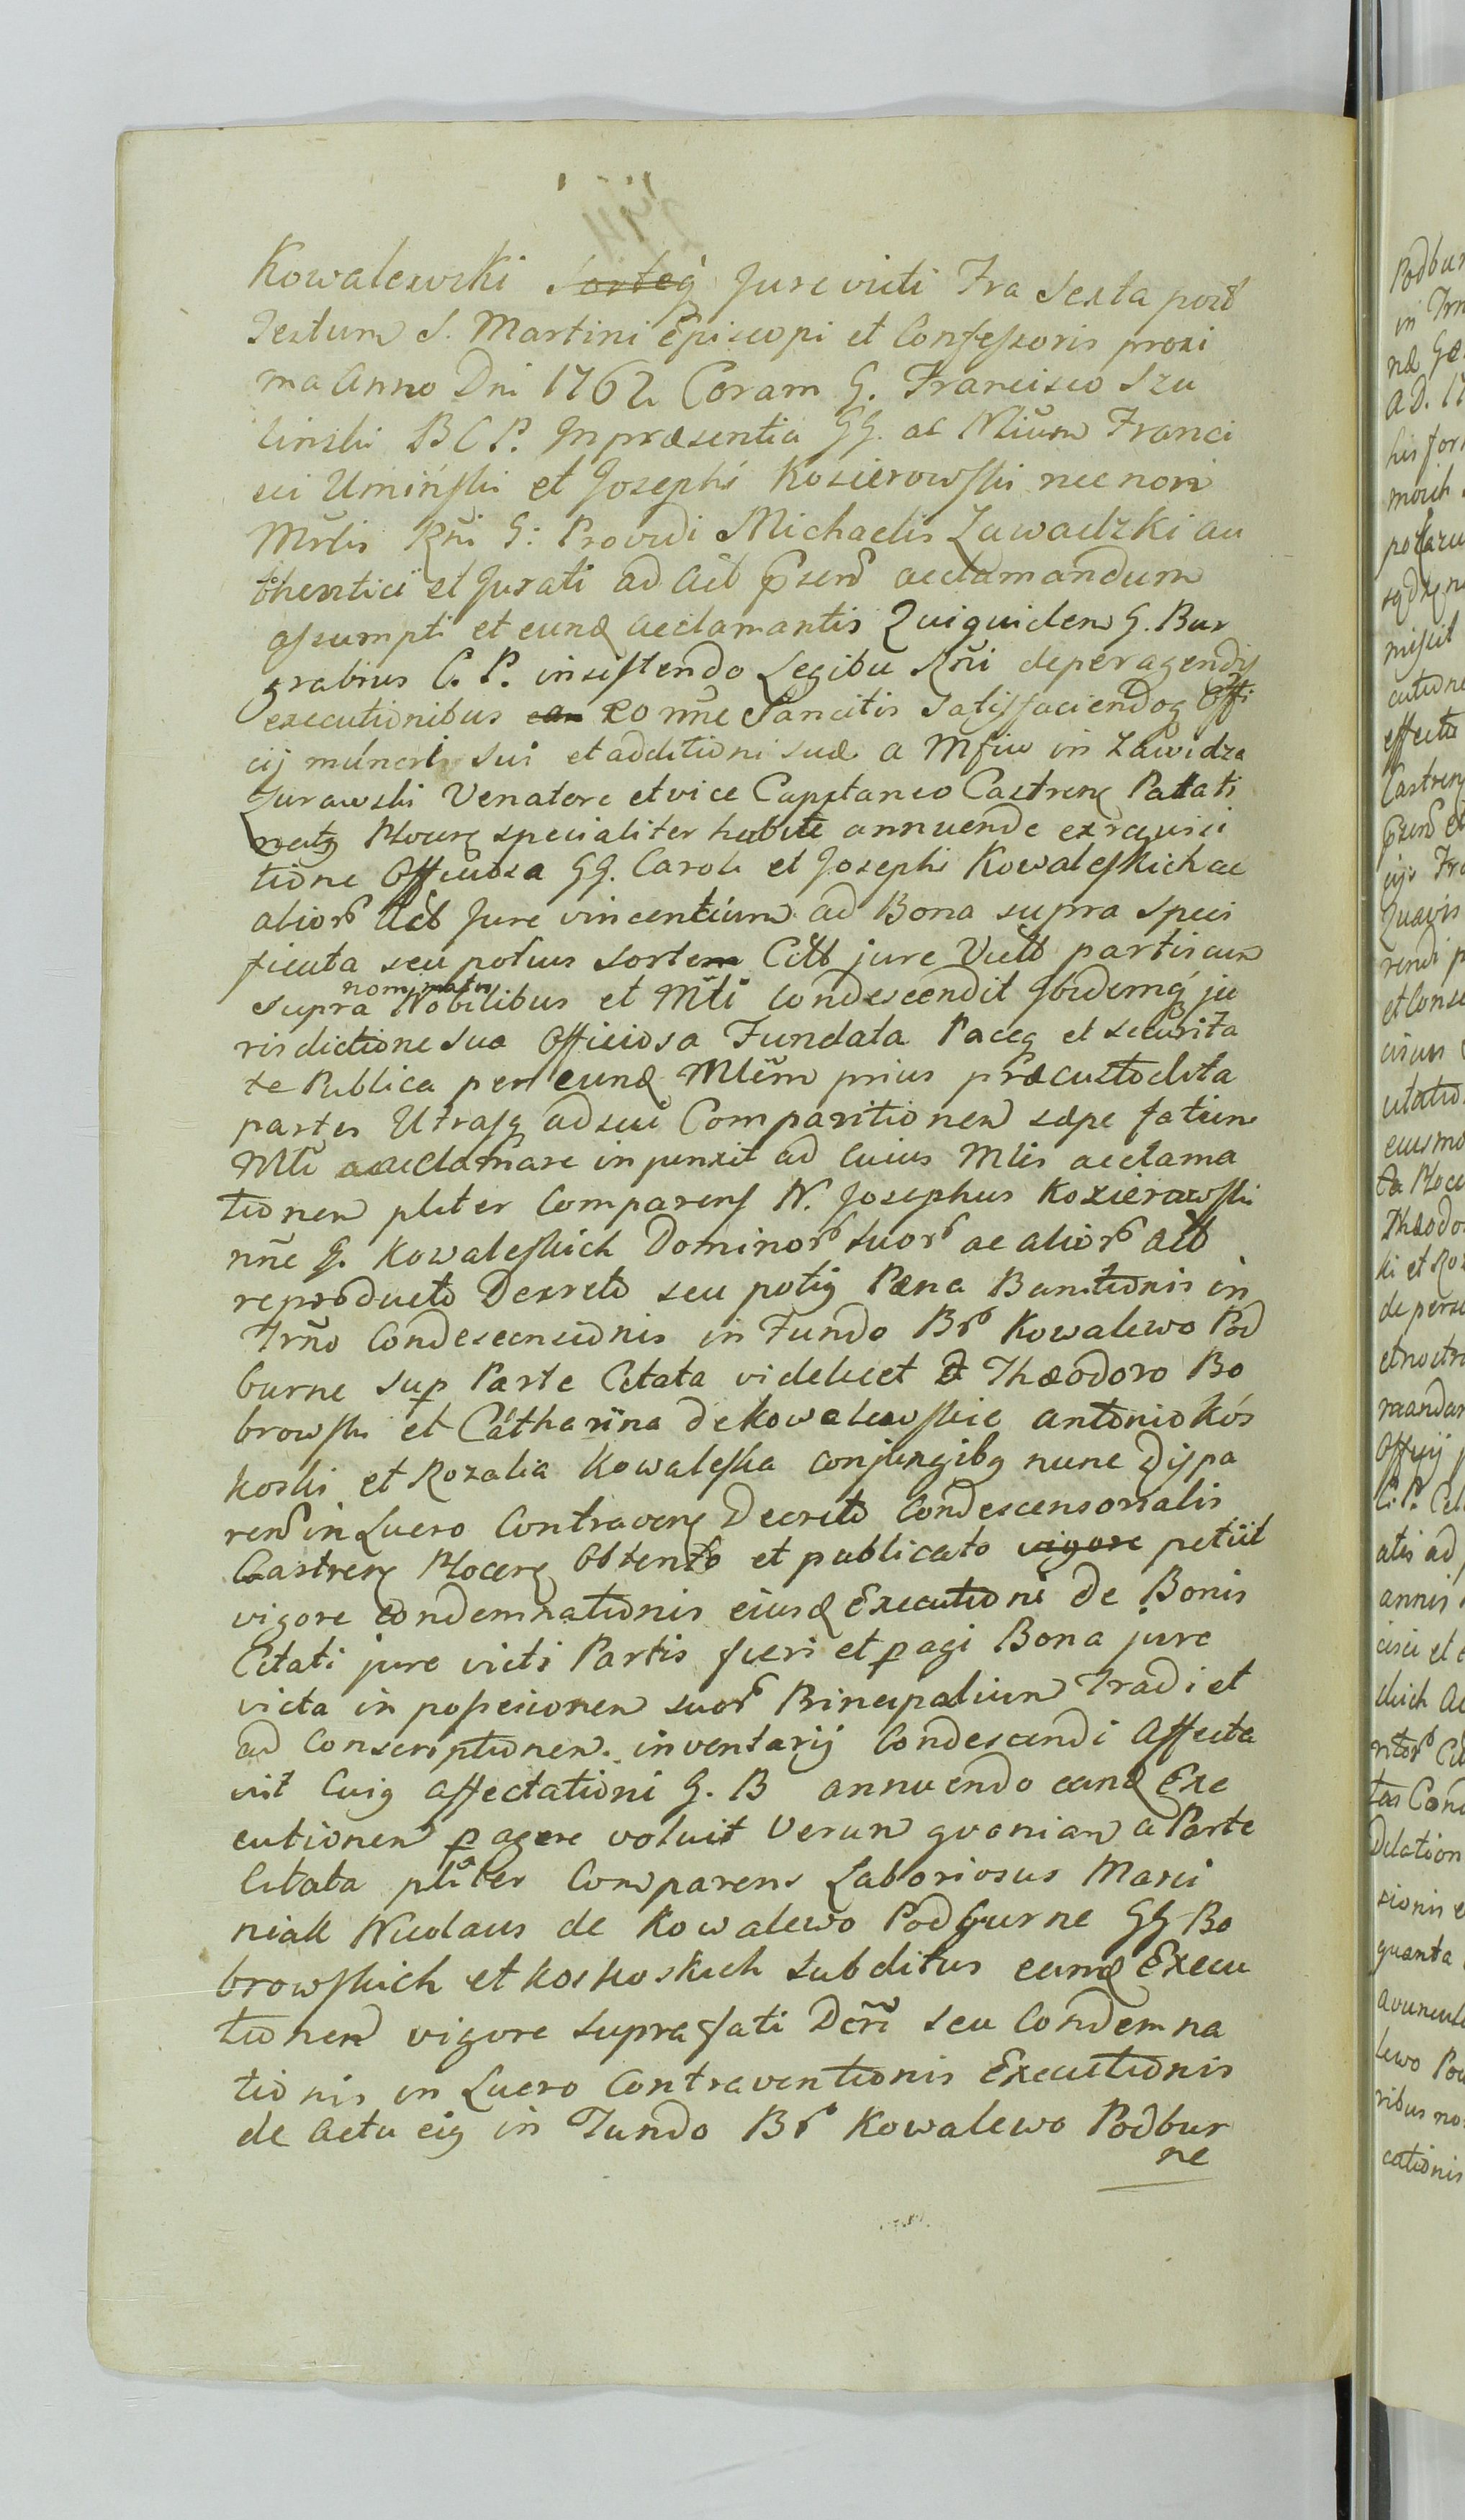 Kowalewski Sorteq Jure victi Fra Sexta post
Festum S. Martini Episcopi et Confessoris proxi
ma Anno Dni 1762 Coram G. Francisco Szu
linski B C P. In præsentia GG. ac Nlium Franci
sci Umiński et Josephi Kosierowski nec non
Mrlis Rni G: Providi Michaelis Zawadzki au
thentici et Jurati ad act præsend acclamandum
assumpti et eund acclamantis Quiquidem G. Bur
grabius C. P. insistendo Legibu Rni deperagendis
executionibus eo nne Sancitis Satisfaciendoq Offi
cij muneris sui et additioni suæ a Mfiu in Zawidza
Jurawski Venatore et vice Capptaneo Castren Pallati
natq Plocen specialiter habite annuende ex requisi
tione Officiosa GG. Caroli et Josephi Kowaleskich ac
alior Act Jure vincentium ad Bona supra speci
ficata seu potius sortem Citt jure Victt partis cum
supra nominatis Nobilibus et Mlti condescendit Ibidemq ju
risdictione sua Officiosa Fundata Paceq et securita
te Publica per eund Mlem prius præcustodita
partes Utrasq ad sui Comparitionem sæpe fatum
Mlti acclamare injunxit ad cuius Mlis acclama
tionem pliter Comparens N. Josephus Kozierowski
nne G. Kowaleskich Dominor suor ac alior Act
reproducto Decreto seu potiq Pæna Banitionis in
Trno Condescensionis in Fundo Br Kowalewo Pod
burne sup Parte Citata videlicet Theodoro Bo
browski et Catharina de Kowalewskie Antonio Kos
koski et Rozalia Kowaleska conjungibq nunc Dispa
rend in Lucro Contraven Decreto Condescensorialis
Castren Plocen Obtento et publicato vigore petiit
vigore condemnationis eiusd Executioni de Bonis
Citati jure victi Partis fieri et pagi Bona jure
victa in possesionem suor Principalium Tradi et
ad Conscriptionem inventarij Condescendi Affecta
vit Cuiq affectationi G. B annuendo eand Exe
cutionem pagere voluit Verum quoniam a Parte
Citata pliter Comparens Laboriosus Marci
niak Nicolaus de Kowalewo Podburne GG Bo
browskich et Koskoskich Subditus eamd Execu
tionem vigore suprafati Dcri seu Condemna
tionis in Lucro Contraventionis Executionis
de Actu eiq in Fundo Br Kowalewo Podbur
ne